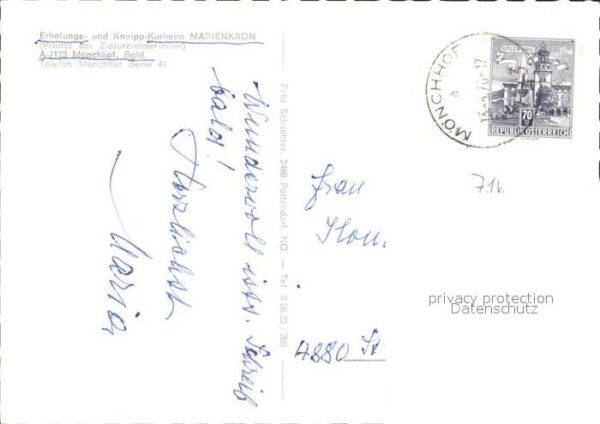 Erholungs- und Kneipp-Kurheim MARIENKRON
(Priorat der Zisterzienserinnen)
A-7123 Mönchhof, Bgld.
Telefon Mönchhof Serie 41
Wundervoll ists. Schreib
bald!
Herzlichst
Maria
Foto Schlüchter, 2486 Pottendorf, NÖ. — Tel. 0 26 23 / 286
MÖNCHHOF
a
SALZBURG
70
REPUBLIK ÖSTERREICH
716
Frau
Ilon
4880 St
privacy protection
Datenschutz